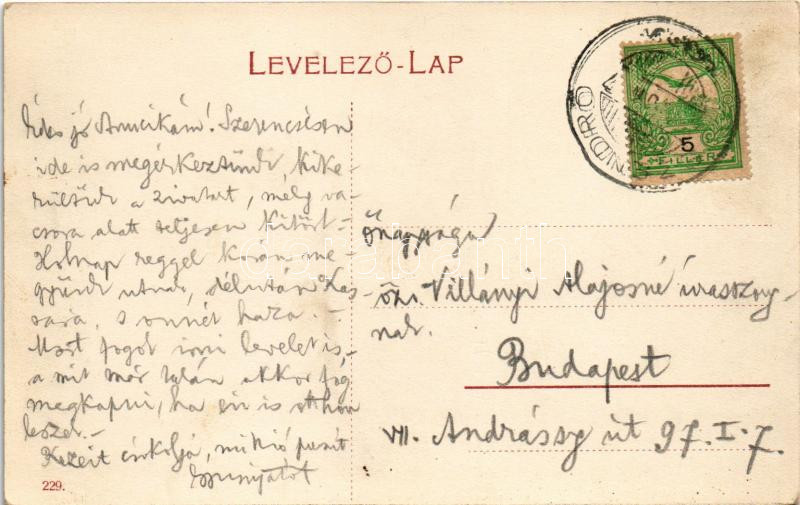 LEVELEZŐ-LAP
5
FILLÉR
Édes jó Anucikám! Szerencsésen
ide is megérkeztünk, kike-
rültük a zivatart, mely va-
csora alatt teljesen kitört.-
Holnap reggel korán me-
gyünk utnak, délután Kas-
sára, s onnét haza.-
Most fogok irni levelet is,-
a mit már talán akkor fog
megkapni, ha én is otthon
leszek.-
Kezeit csókolja, mikió
Őnagysága
özv. Villányi Alajosné úrasszony-
nak.
Budapest
VII. Andrássy út 97. I. 7.
229.